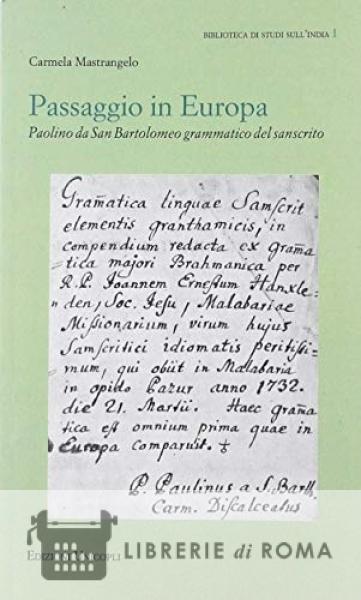 BIBLIOTECA DI STUDI SULL'INDIA 1
Carmela Mastrangelo
Passaggio in Europa
Paolino da San Bartolomeo grammatico del sanscrito
Gram̄atica linguae Samſcrit
elementis granthamicis, in
compendium redacta ex gram̄a
tica majori Brahmanica per
R. P. Joannem Erneſtum Hanxle-
den, Soc. Jeſu, Malabariae
Miſſionarium, virum hujus
Samſcritici idiomatis peritiſſi-
mum, qui obiit in Malabaria
in opido Pazur anno 1732.
die 21. Martii. Haec gram̄a
tica eſt omnium prima quae in
Europa comparuit.
P. Paulinus a S. Barth.
Carm. Diſcalceatus
LIBRERIE di ROMA